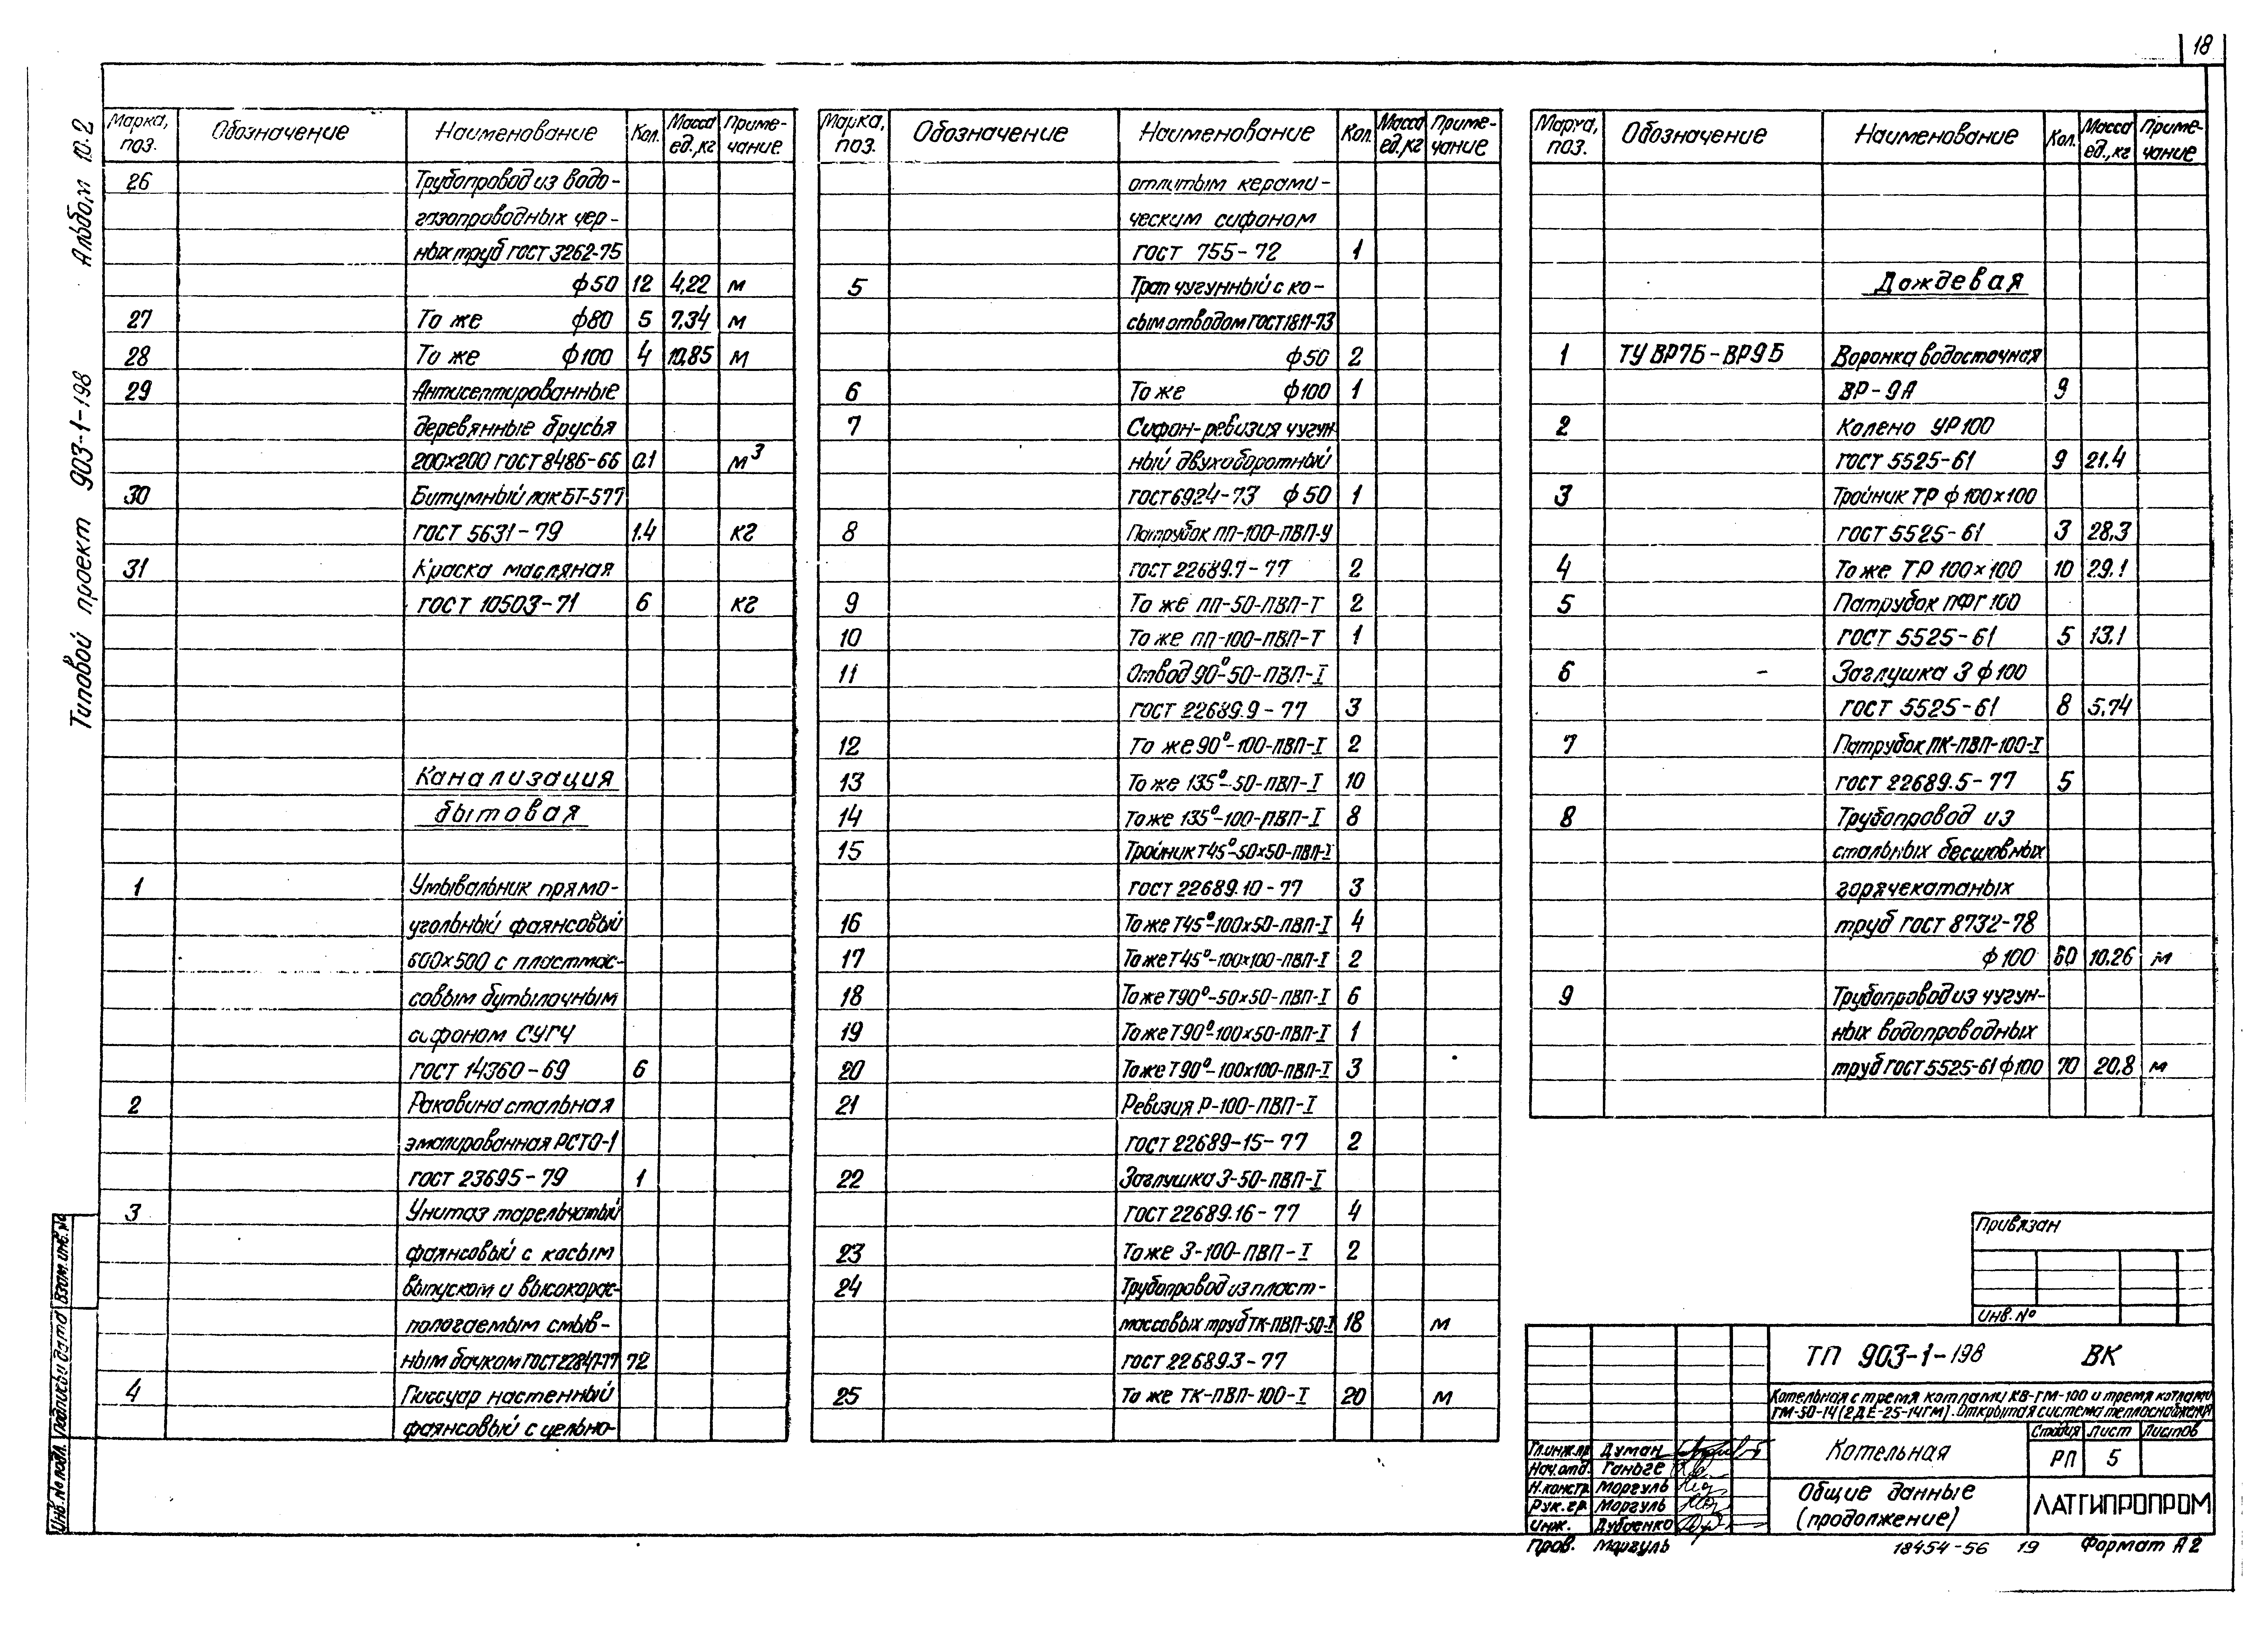 18
Альбом 10.2
Типовой проект 903-1-198
Марка, поз. Обозначение Наименование Кол. Масса ед.,кг Приме-чание
26 Трубопровод из водо-
газопроводных чер-
ных труб ГОСТ 3262-75
ф50 12 4,22 м
27 То же ф80 5 7,34 м
28 То же ф100 4 10,85 м
29 Антисептированные
деревянные брусья
200x200 ГОСТ 8486-66 0.1 м³
30 Битумный лак БТ-577
ГОСТ 5631-79 1.4 кг
31 Краска масляная
ГОСТ 10503-71 6 кг
Канализация
бытовая
1 Умывальник прямо-
угольный фаянсовый
600x500 с пластмас-
совым бутылочным
сифоном СУГЧ
ГОСТ 14360-69 6
2 Раковина стальная
эмалированная РСТО-1
ГОСТ 23695-79 1
3 Унитаз тарельчатый
фаянсовый с косым
выпуском и высокорас-
пологаемым смыв-
ным бачком ГОСТ 22847-77 72
4 Писсуар настенный
фаянсовый с цельно-
Марка, поз. Обозначение Наименование Кол. Масса ед,кг Приме-чание
отлитым керами-
ческим сифоном
ГОСТ 755-72 1
5 Трап чугунный с ко-
сым отводом ГОСТ 1811-73
ф50 2
6 То же ф100 1
7 Сифон-ревизия чугун
ный двухоборотный
ГОСТ 6924-73 ф50 1
8 Патрубок ПП-100-ПВП-У
ГОСТ 22689.7-77 2
9 То же ПП-50-ПВП-Т 2
10 То же ПП-100-ПВП-Т 1
11 Отвод 90°-50-ПВП-I
ГОСТ 22689.9-77 3
12 То же 90°-100-ПВП-I 2
13 То же 135°-50-ПВП-I 10
14 То же 135°-100-ПВП-I 8
15 Тройник Т45°-50x50-ПВП-I
ГОСТ 22689.10-77 3
16 То же Т45°-100x50-ПВП-I 4
17 То же Т45°-100x100-ПВП-I 2
18 То же Т90°-50x50-ПВП-I 6
19 То же Т90°-100x50-ПВП-I 1
20 То же Т90°-100x100-ПВП-I 3
21 Ревизия Р-100-ПВП-I
ГОСТ 22689-15-77 2
22 Заглушка З-50-ПВП-I
ГОСТ 22689.16-77 4
23 То же З-100-ПВП-I 2
24 Трубопровод из пласт-
массовых труб ТК-ПВП-50-I 18 м
ГОСТ 22689.3-77
25 То же ТК-ПВП-100-I 20 м
Марка, поз. Обозначение Наименование Кол. Масса ед.,кг Приме-чание
Дождевая
1 ТУ ВР7Б-ВР9Б Воронка водосточная
ВР-9А 9
2 Колено УР100
ГОСТ 5525-61 9 21.4
3 Тройник ТР ф100x100
ГОСТ 5525-61 3 28,3
4 То же ТР 100x100 10 29.1
5 Патрубок ПФГ 100
ГОСТ 5525-61 5 13.1
6 Заглушка З ф100
ГОСТ 5525-61 8 5,74
7 Патрубок ПК-ПВП-100-I
ГОСТ 22689.5-77 5
8 Трубопровод из
стальных бесшовных
горячекатаных
труб ГОСТ 8732-78
ф100 60 10.26 м
9 Трубопровод из чугун-
ных водопроводных
труб ГОСТ 5525-61 ф100 70 20,8 м
Привязан
Инв. №
ТП 903-1-198 ВК
Котельная с тремя котлами КВ-ГМ-100 и тремя котлами
ГМ-50-14 (2ДЕ-25-14ГМ). Открытая система теплоснабжения
Котельная
Стадия Лист Листов
РП 5
Общие данные
(продолжение)
ЛАТГИПРОПРОМ
Гл.инж.пр Думан
Нач.отд. Ганьге
Н.контр. Моргуль
Рук.гр. Моргуль
Инж. Дубоенко
Пров. Моргуль
18454-56 19 Формат А2
Инв.№ подл. Подпись и дата Взам.инв.№